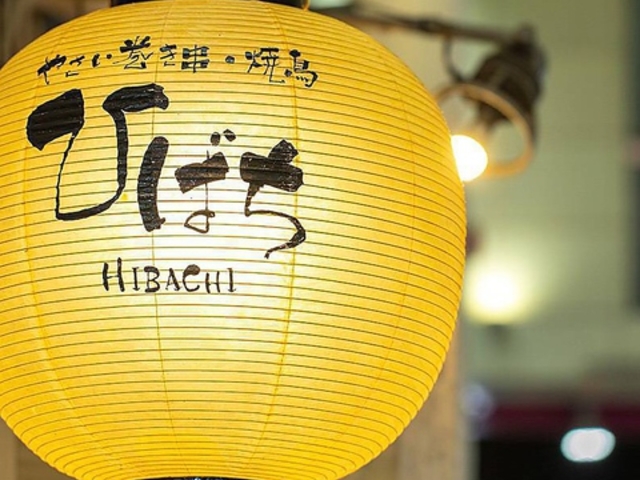 やさい巻き串・焼鳥
ひばち
HIBACHI